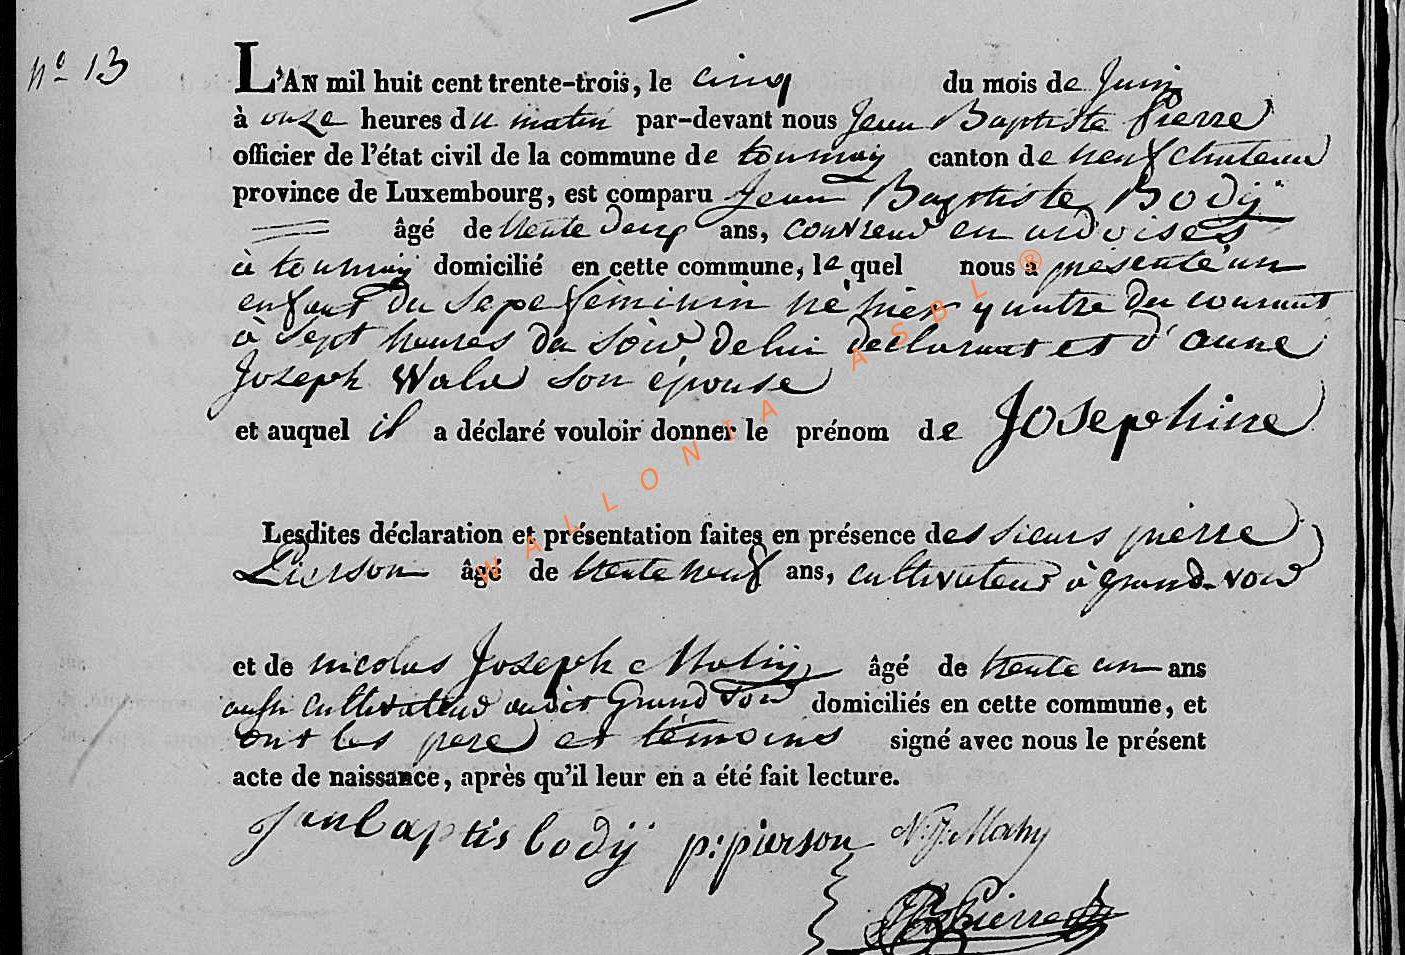 nº 13
L'AN mil huit cent trente-trois, le cinq du mois de Juin
à onze heures du matin par-devant nous Jean Baptiste Pierre
officier de l'état civil de la commune de tournay canton de neufchateau
province de Luxembourg, est comparu Jean Baptiste Bodÿ
âgé de trente deux ans, couvreur en ardoises
à tournay domicilié en cette commune, lequel nous a présenté un
enfant du sexe féminin né hier quatre du courant
à sept heures du soir, de lui déclarant et d'anne
Joseph Wala son épouse
et auquel il a déclaré vouloir donner le prénom de Josephine
Lesdites déclaration et présentation faites en présence des sieurs pierre
Pierson âgé de trente neuf ans, cultivateur à grand-voir
et de nicolas Joseph Mahy âgé de trente un ans
aussi cultivateur audit Grand Voir domiciliés en cette commune, et
ont les pere et témoins signé avec nous le présent
acte de naissance, après qu'il leur en a été fait lecture.
Jean baptis bodÿ p: pierson N. J. Mahy
JB Pierre
WALLONIA ASBL ®